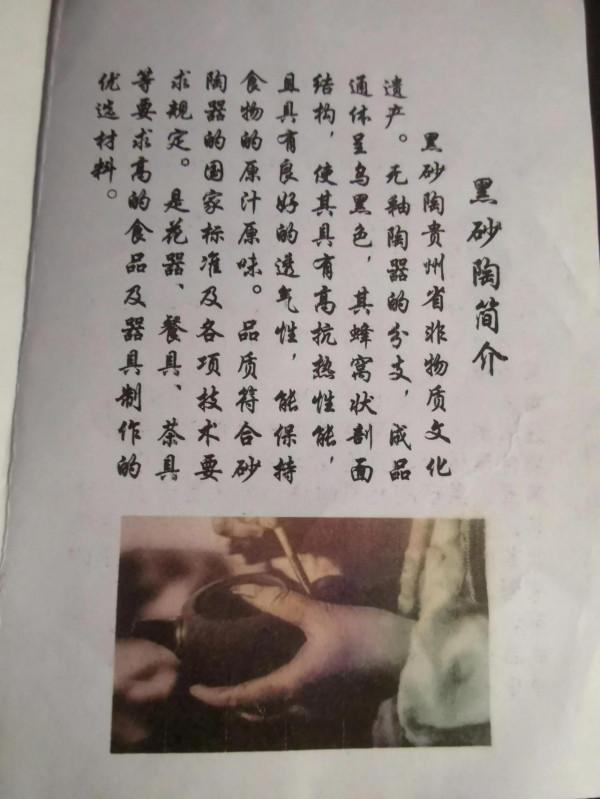 黑砂陶简介
黑砂陶贵州省非物质文化
遗产。无釉陶器的分支，成品
通体呈乌黑色，其蜂窝状剖面
结构，使其具有高抗热性能，
且具有良好的透气性，能保持
食物的原汁原味。品质符合砂
陶器的国家标准及各项技术要
求规定。是花器、餐具、茶具
等要求高的食品及器具制作的
优选材料。